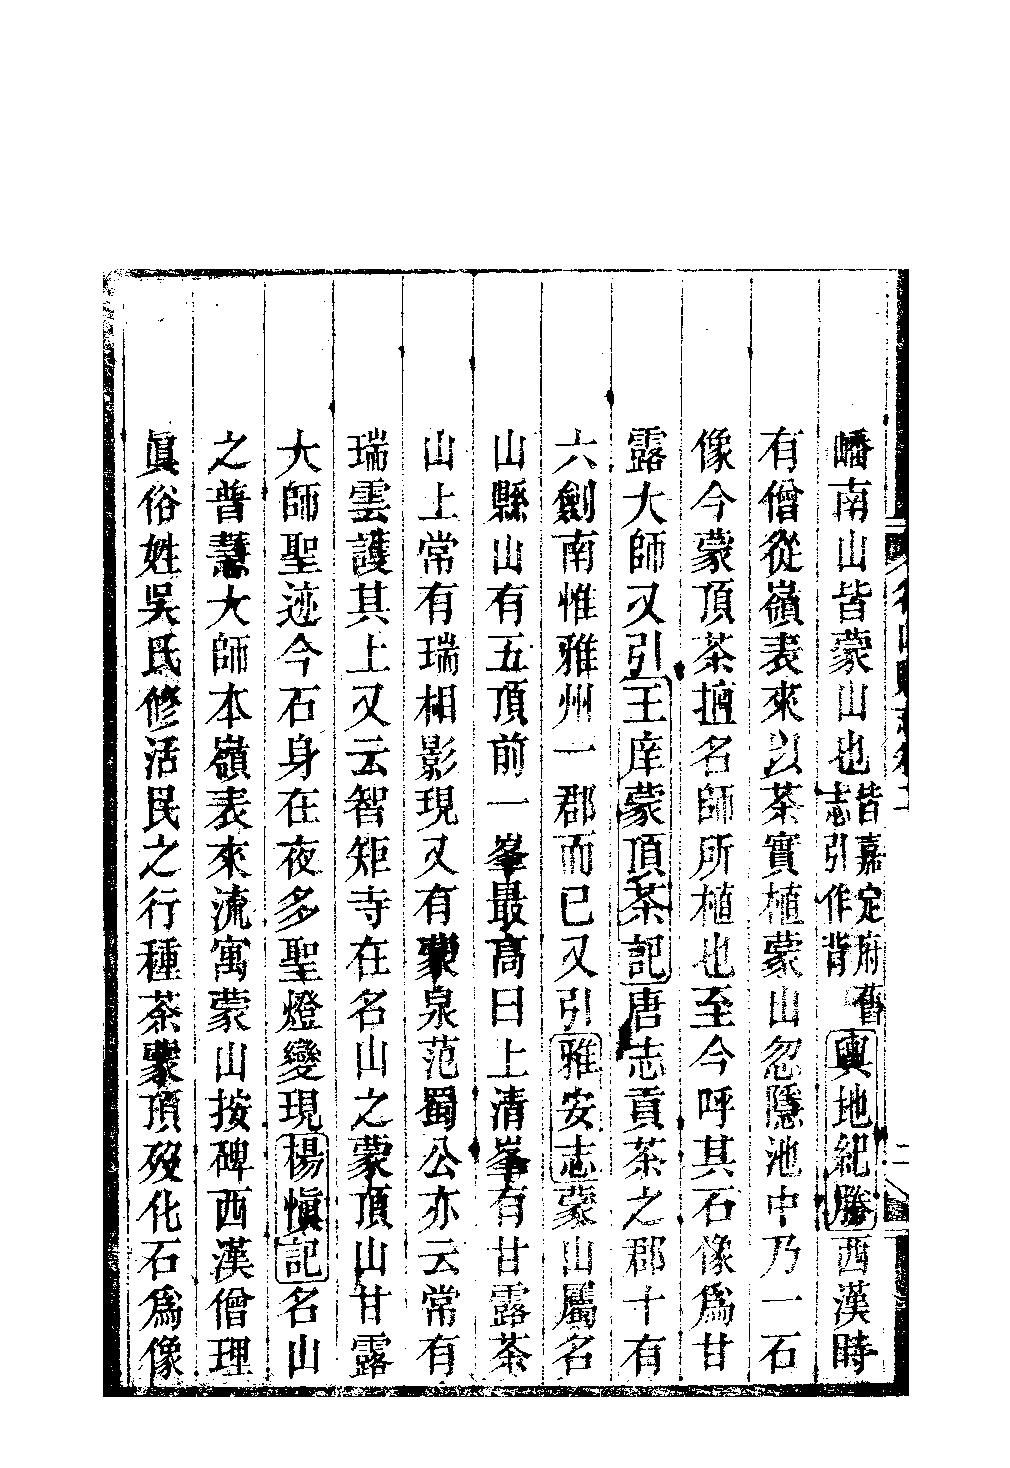 嶓南山皆蒙山也皆嘉定府舊志引作背輿地紀勝西漢時
有僧從嶺表來以茶實植蒙山忽隱池中乃一石
像今蒙頂茶擅名師所植也至今呼其石像爲甘
露大師又引王庠蒙頂茶記唐志貢茶之郡十有
六劍南惟雅州一郡而已又引雅安志蒙山屬名
山縣山有五頂前一峯最高曰上清峯有甘露茶
山上常有瑞相影現又有蒙泉范蜀公亦云常有
瑞雲護其上又云智矩寺在名山之蒙頂山甘露
大師聖迹今石身在夜多聖燈變現楊愼記名山
之普慧大師本嶺表來流寓蒙山按碑西漢僧理
眞俗姓吳氏修活民之行種茶蒙頂歿化石爲像